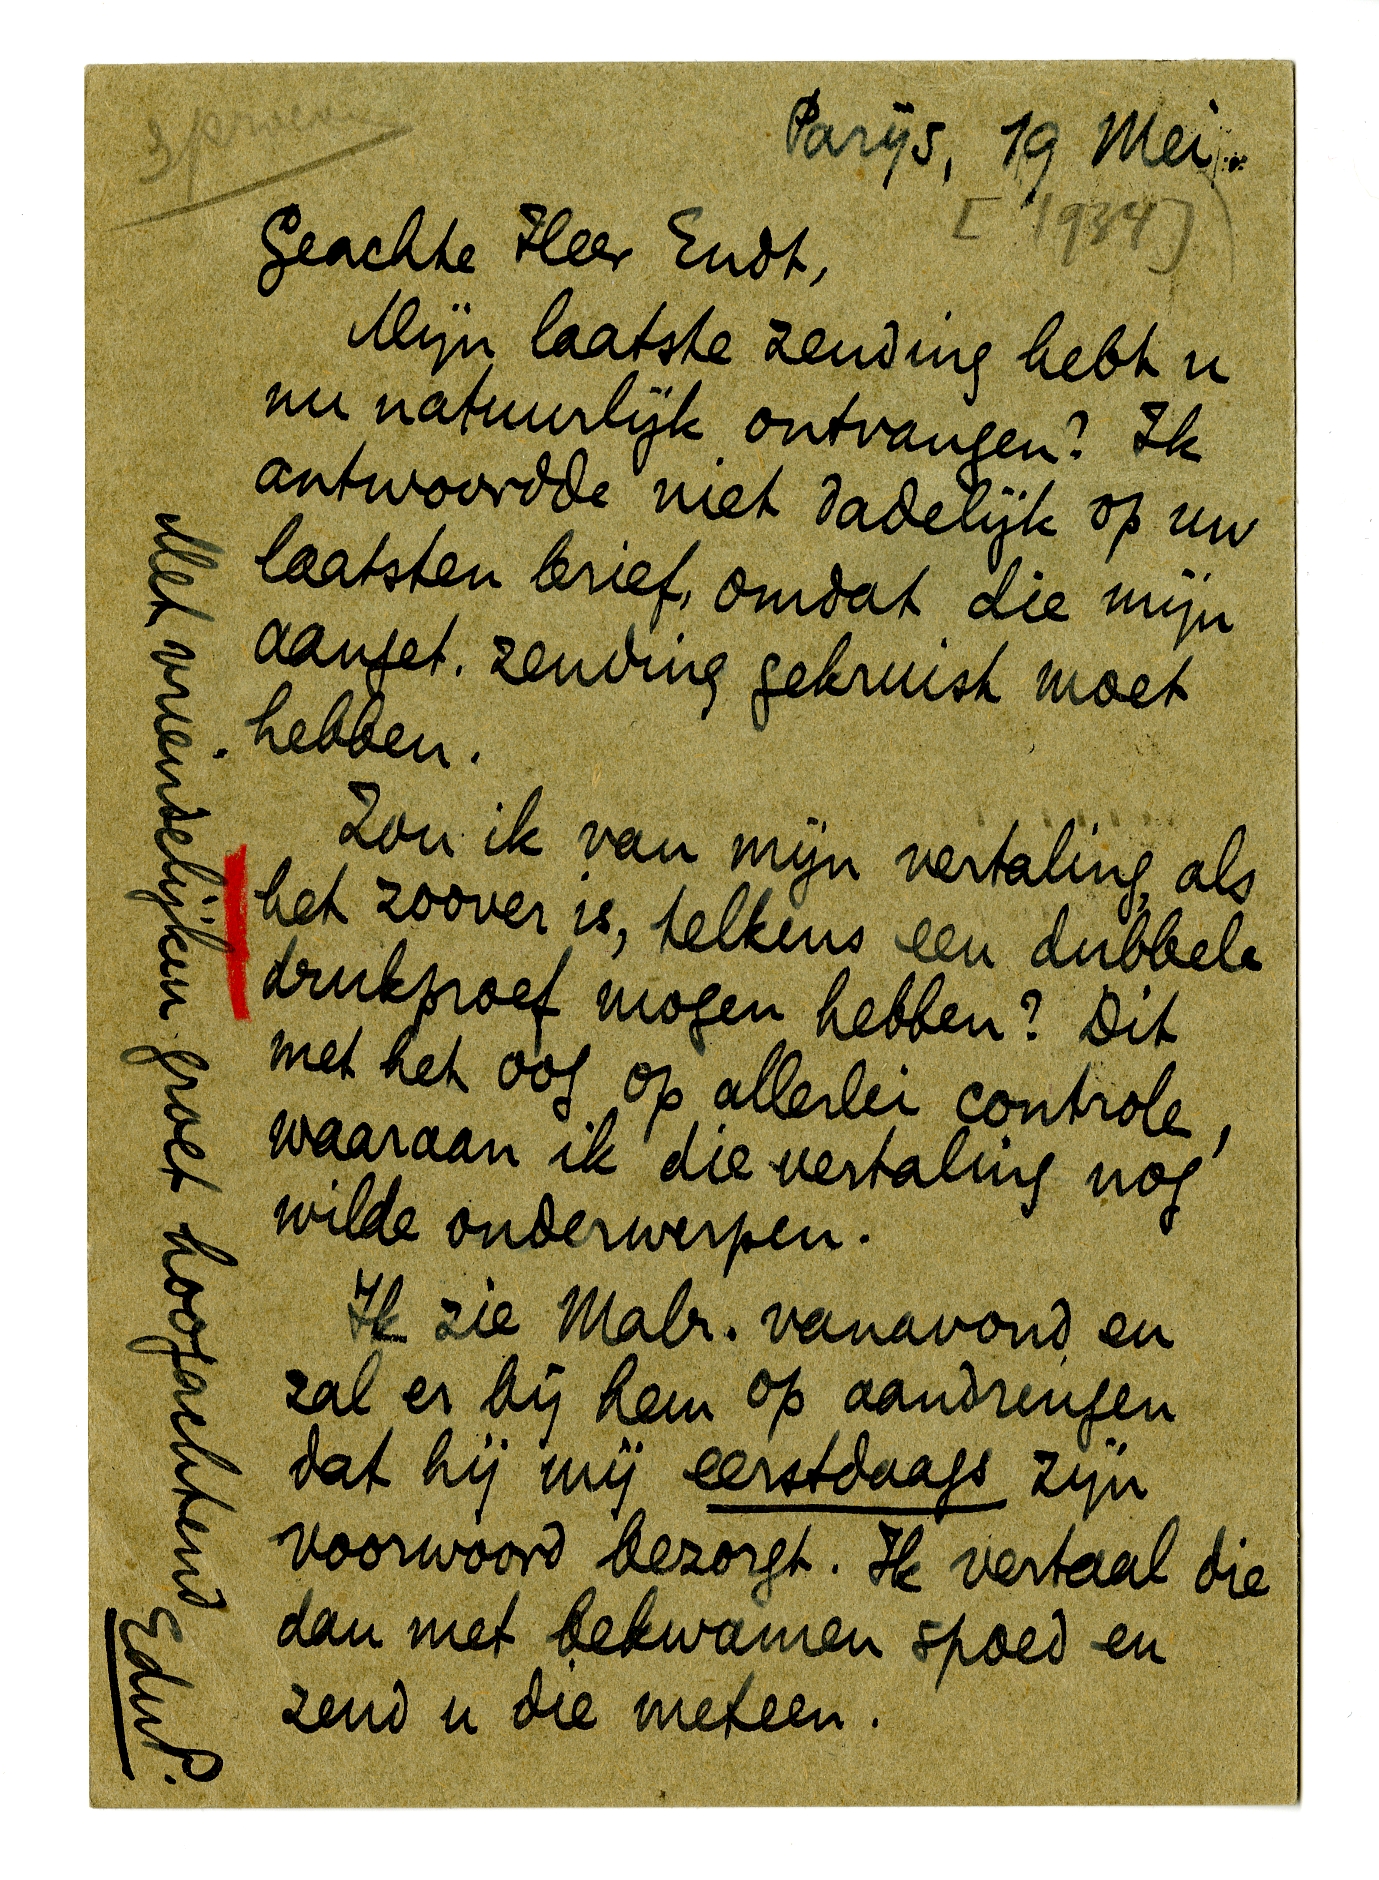 3 proeven
Parijs, 19 Mei.
[1934]
Geachte Heer Endt,
Mijn laatste zending hebt u
nu natuurlijk ontvangen? Ik
antwoordde niet dadelijk op uw
laatsten brief, omdat die mijn
aanget. zending gekruist moet
hebben.
Zou ik van mijn vertaling, als
het zoover is, telkens een dubbele
drukproef mogen hebben? Dit
met het oog op allerlei controle,
waaraan ik die vertaling nog
wilde onderwerpen.
Ik zie Malr. vanavond en
zal er bij hem op aandringen
dat hij mij eerstdaags zijn
voorwoord bezorgt. Ik vertaal die
dan met bekwamen spoed en
zend u die meteen.
Met vriendelijken groet hoogachtend
EduP.